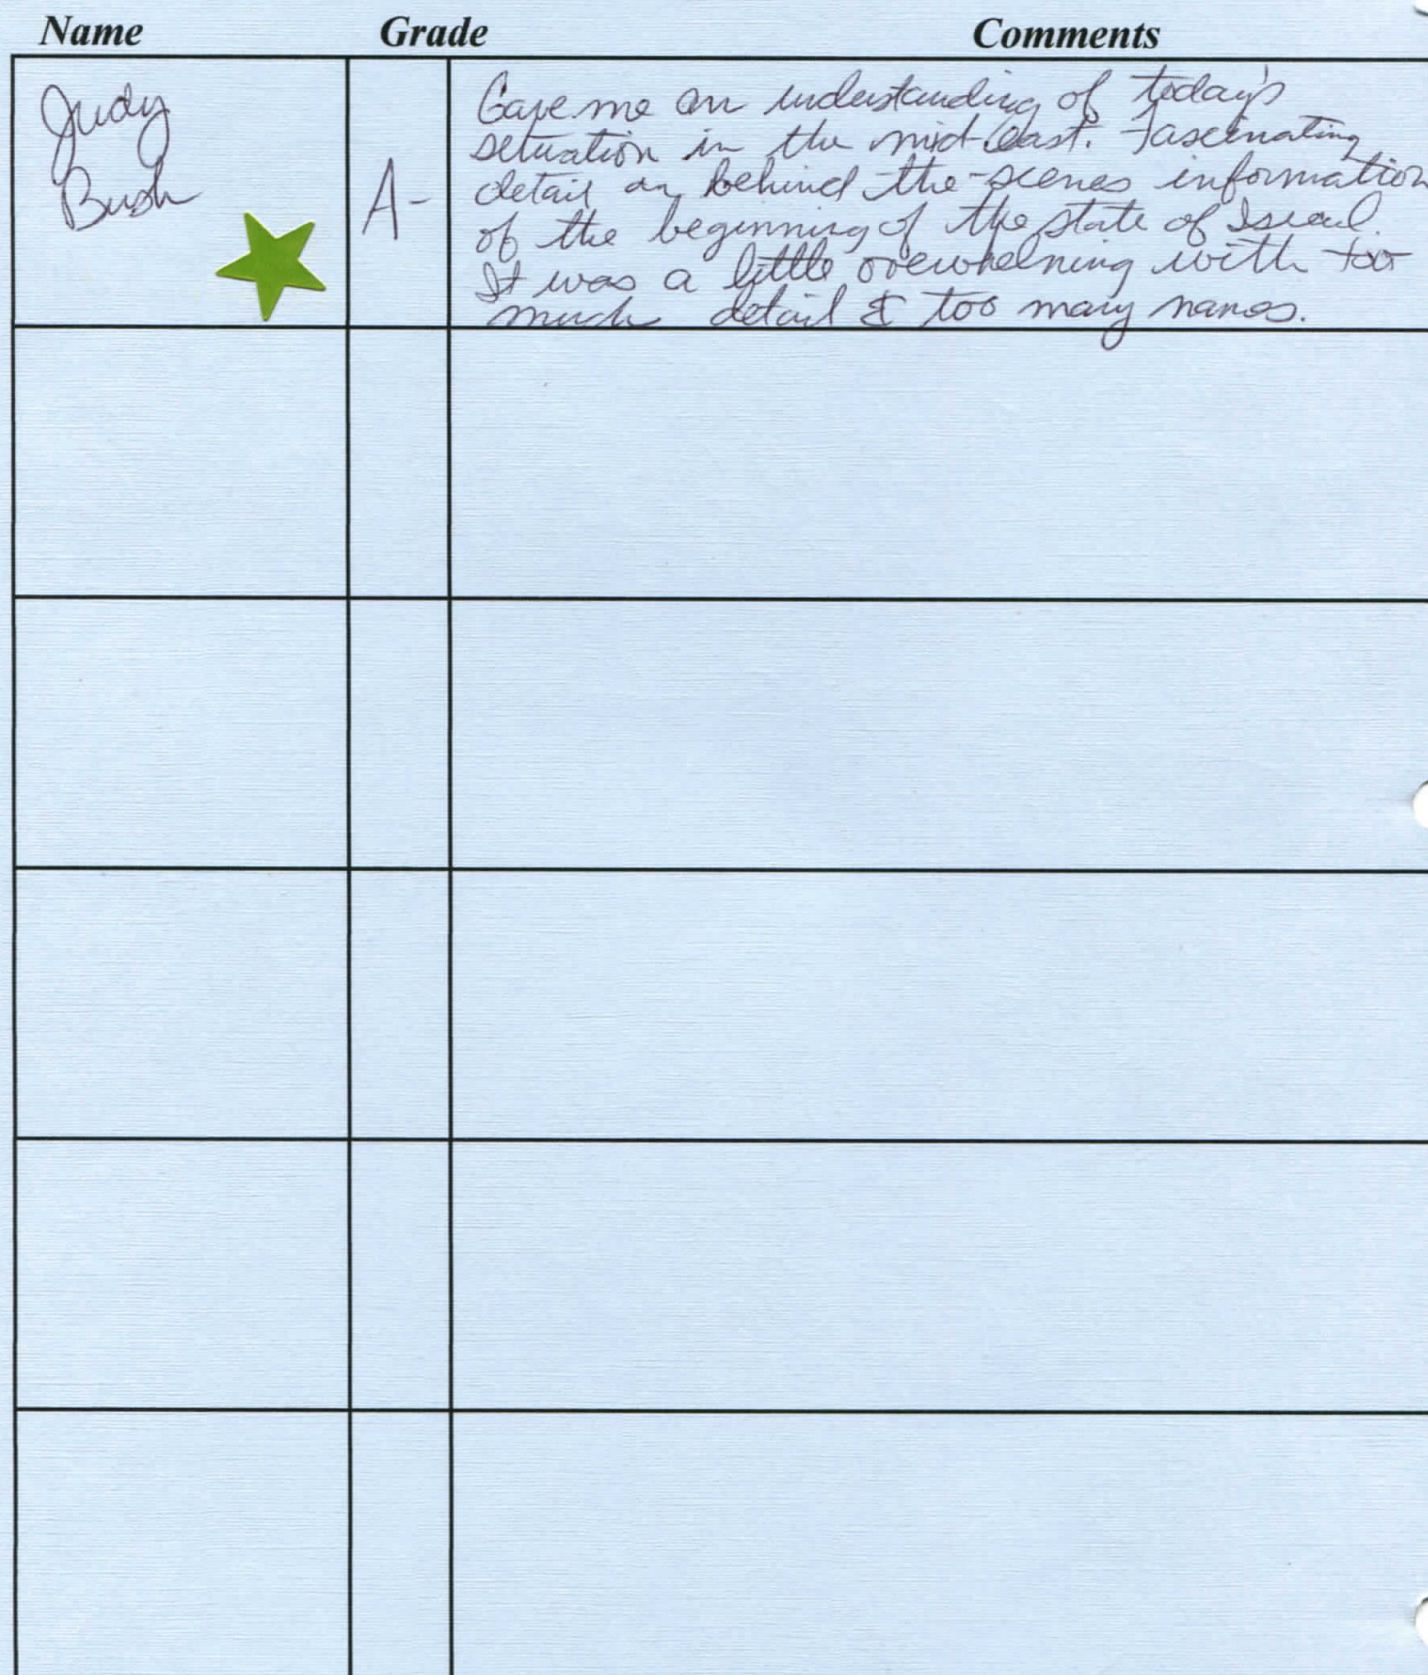 Name Grade Comments
Judy
Bush
A-
Gave me an understanding of today's
situation in the mid-east. Fascinating
detail on behind-the-scenes information
of the beginning of the state of Israel.
It was a little overwhelming with too
much detail & too many names.